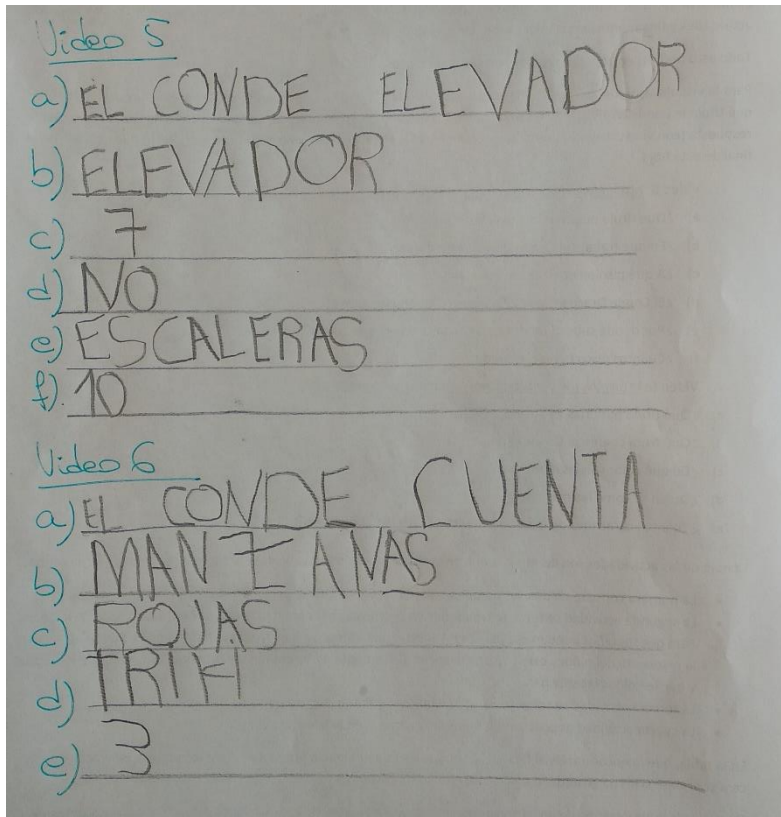 Video 5
a) EL CONDE ELEVADOR
b) ELEVADOR
c) 7
d) NO
e) ESCALERAS
f) 10
Video 6
a) EL CONDE CUENTA
b) MANZANAS
c) ROJAS
d) TRIKI
e) 3